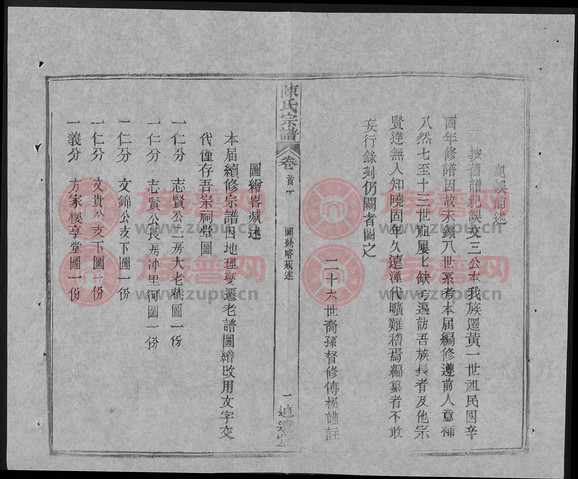 紀誤補述
按舊譜紀誤文三公本我族遷黃一世祖民國辛
酉年修譜因故未錄入世系考本届編修遵前人意補
入然七至十三世祖屢七缺考遍訪吾族長者及他宗
賢達無人知曉固年久遠湮代曠難稽焉編纂者不敢
妄行錄刻仍闕者闕之
二十六世裔孫督修傳極謹註
陳氏宗譜
卷首下
圖繪略蕆述
一
追遠堂
圖繪略蕆述
本届續修宗譜因地理變遷老譜圖繪改用文字交
代僅存吾宗祠堂圖
一仁分 志賢公二房大老礎圖一份
一仁分 志賢公長房冲里河圖一份
一仁分 文錦公支下圖一份
一仁分 文貴公支下圖一份
一義分 方家梗享堂圖一份
族譜网
www.zupu.cn